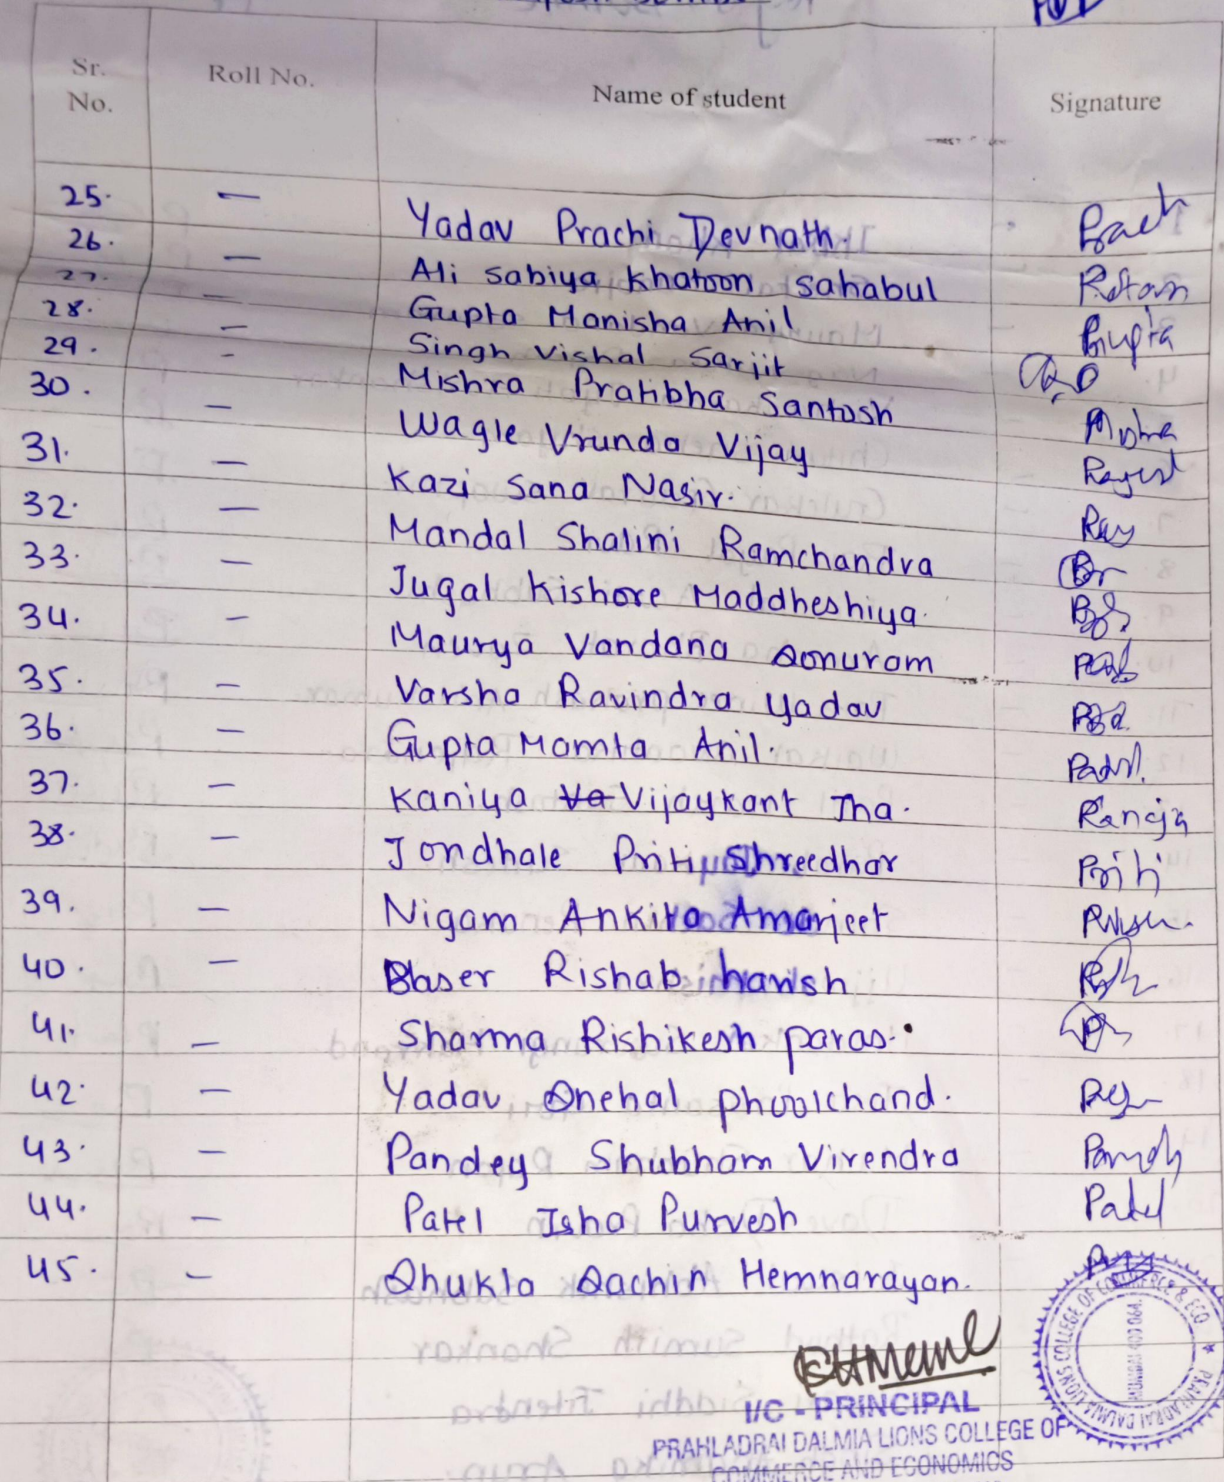 Sr. No. Roll No. Name of student Signature
25. — Yadav Prachi Devnath.
26. — Ali sabiya khatoon sahabul
27. — Gupta Manisha Anil Gupta
28. — Singh Vishal Sarjit
29. - Mishra Pratibha Santosh
30. — Wagle Vrunda Vijay
31. — Kazi Sana Nasir.
32. — Mandal Shalini Ramchandra
33. — Jugal Kishore Maddheshiya.
34. — Maurya Vandana Sonuram
35. — Varsha Ravindra Yadav
36. — Gupta Mamta Anil.
37. — Kaniya Va Vijaykant Jha.
38. — Jondhale Priti Shreedhar Priti
39. — Nigam Ankita Amarjeet
40. — Blaser Rishab harish
41. — Sharma Rishikesh paras.
42. — Yadav Snehal phoolchand.
43. — Pandey Shubham Virendra
44. — Patel Isha Purvesh Patel
45. — Shukla Sachin Hemnarayan.
I/C - PRINCIPAL
PRAHLADRAI DALMIA LIONS COLLEGE OF
COMMERCE AND ECONOMICS
PRAHLADRAI DALMIA LIONS COLLEGE OF COMMERCE & ECO
MUMBAI 400 064.